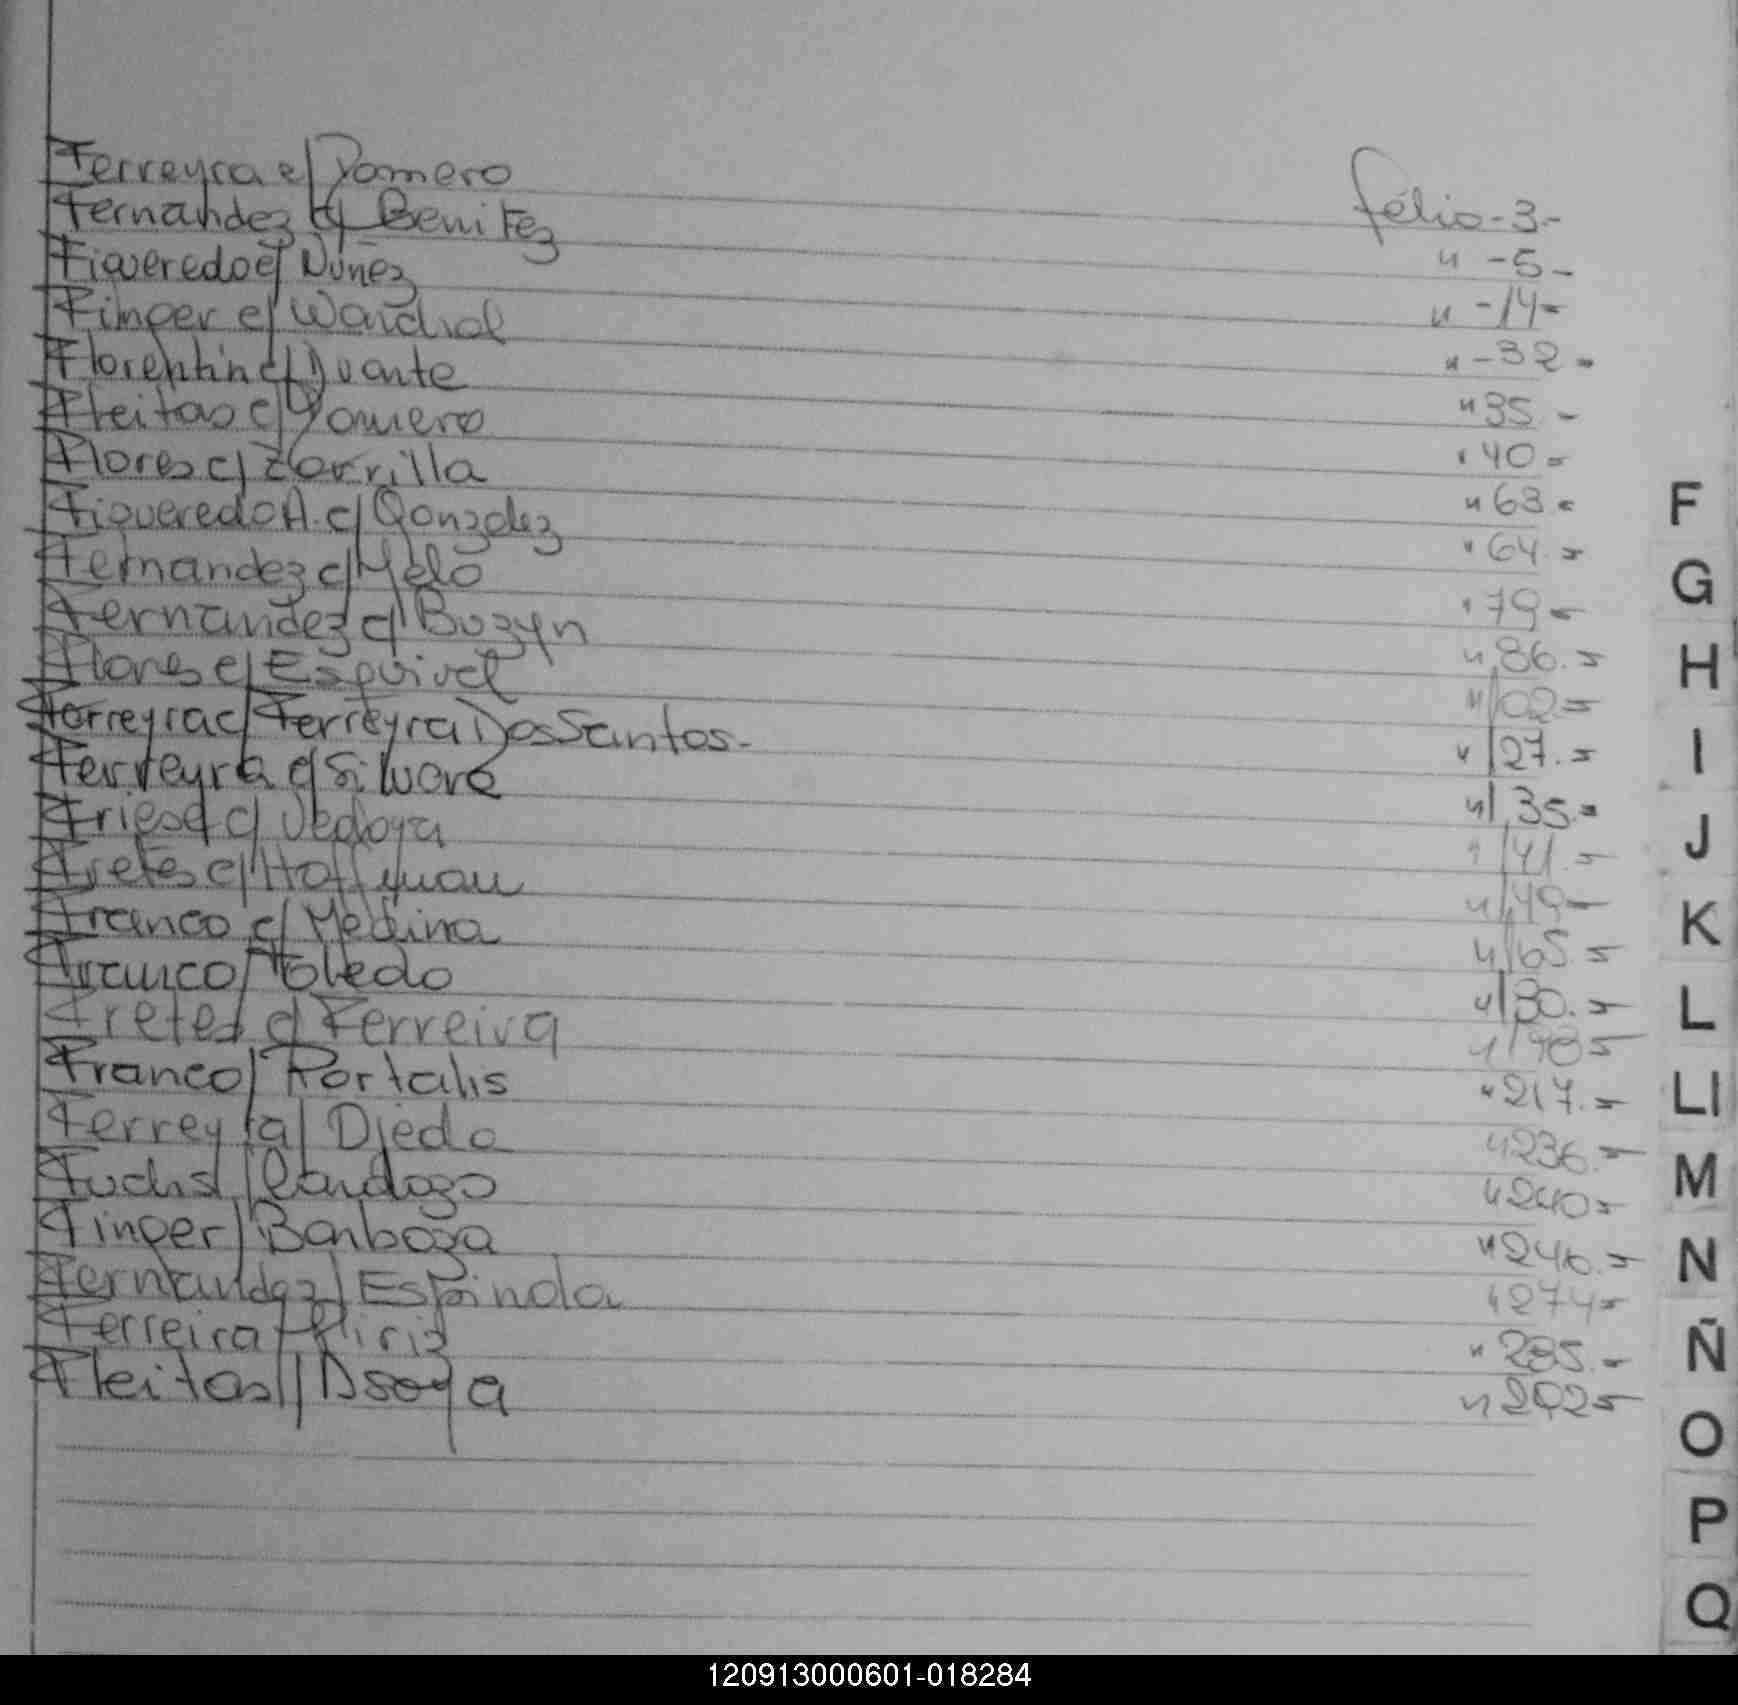 Ferreyra c/ Romero félio-3-
Fernandez c/ Benitez " -5-
Figueredo c/ Nunez " -14-
Finger c/ " -32-
Florentin c/ Duarte " 35.-
Fleitas c/ Romero " 40-
Flores c/ Zorrilla " 63-
Figueredo A. c/ Gonzalez " 64.-
Fernandez c/ Melo " 79-
Fernandez c/ Bozyn " 86.-
Flores c/ Esquivel " 102-
Ferreyra c/ Ferreyra Dos Santos- " 127.-
Ferreyra c/ Silvare " 135.-
c/ Vedoya " 141.-
Fretes c/ Hoffman " 149-
Franco c/ Medina " 165.-
Franco/ Toledo " 180.-
Fretes c/ Ferreira " 198-
Franco/ Portalis " 217.-
Ferreyra/ Ojeda " 236.-
Fuchs/ Cardozo " 240-
Finger/ Barboza " 246.-
Fernandez/ Espindola " 274-
Ferreira/ Piriz " 285.-
Fleitas// Dsoya " 292-
F
G
H
I
J
K
L
Ll
M
N
Ñ
O
P
Q
120913000601-018284